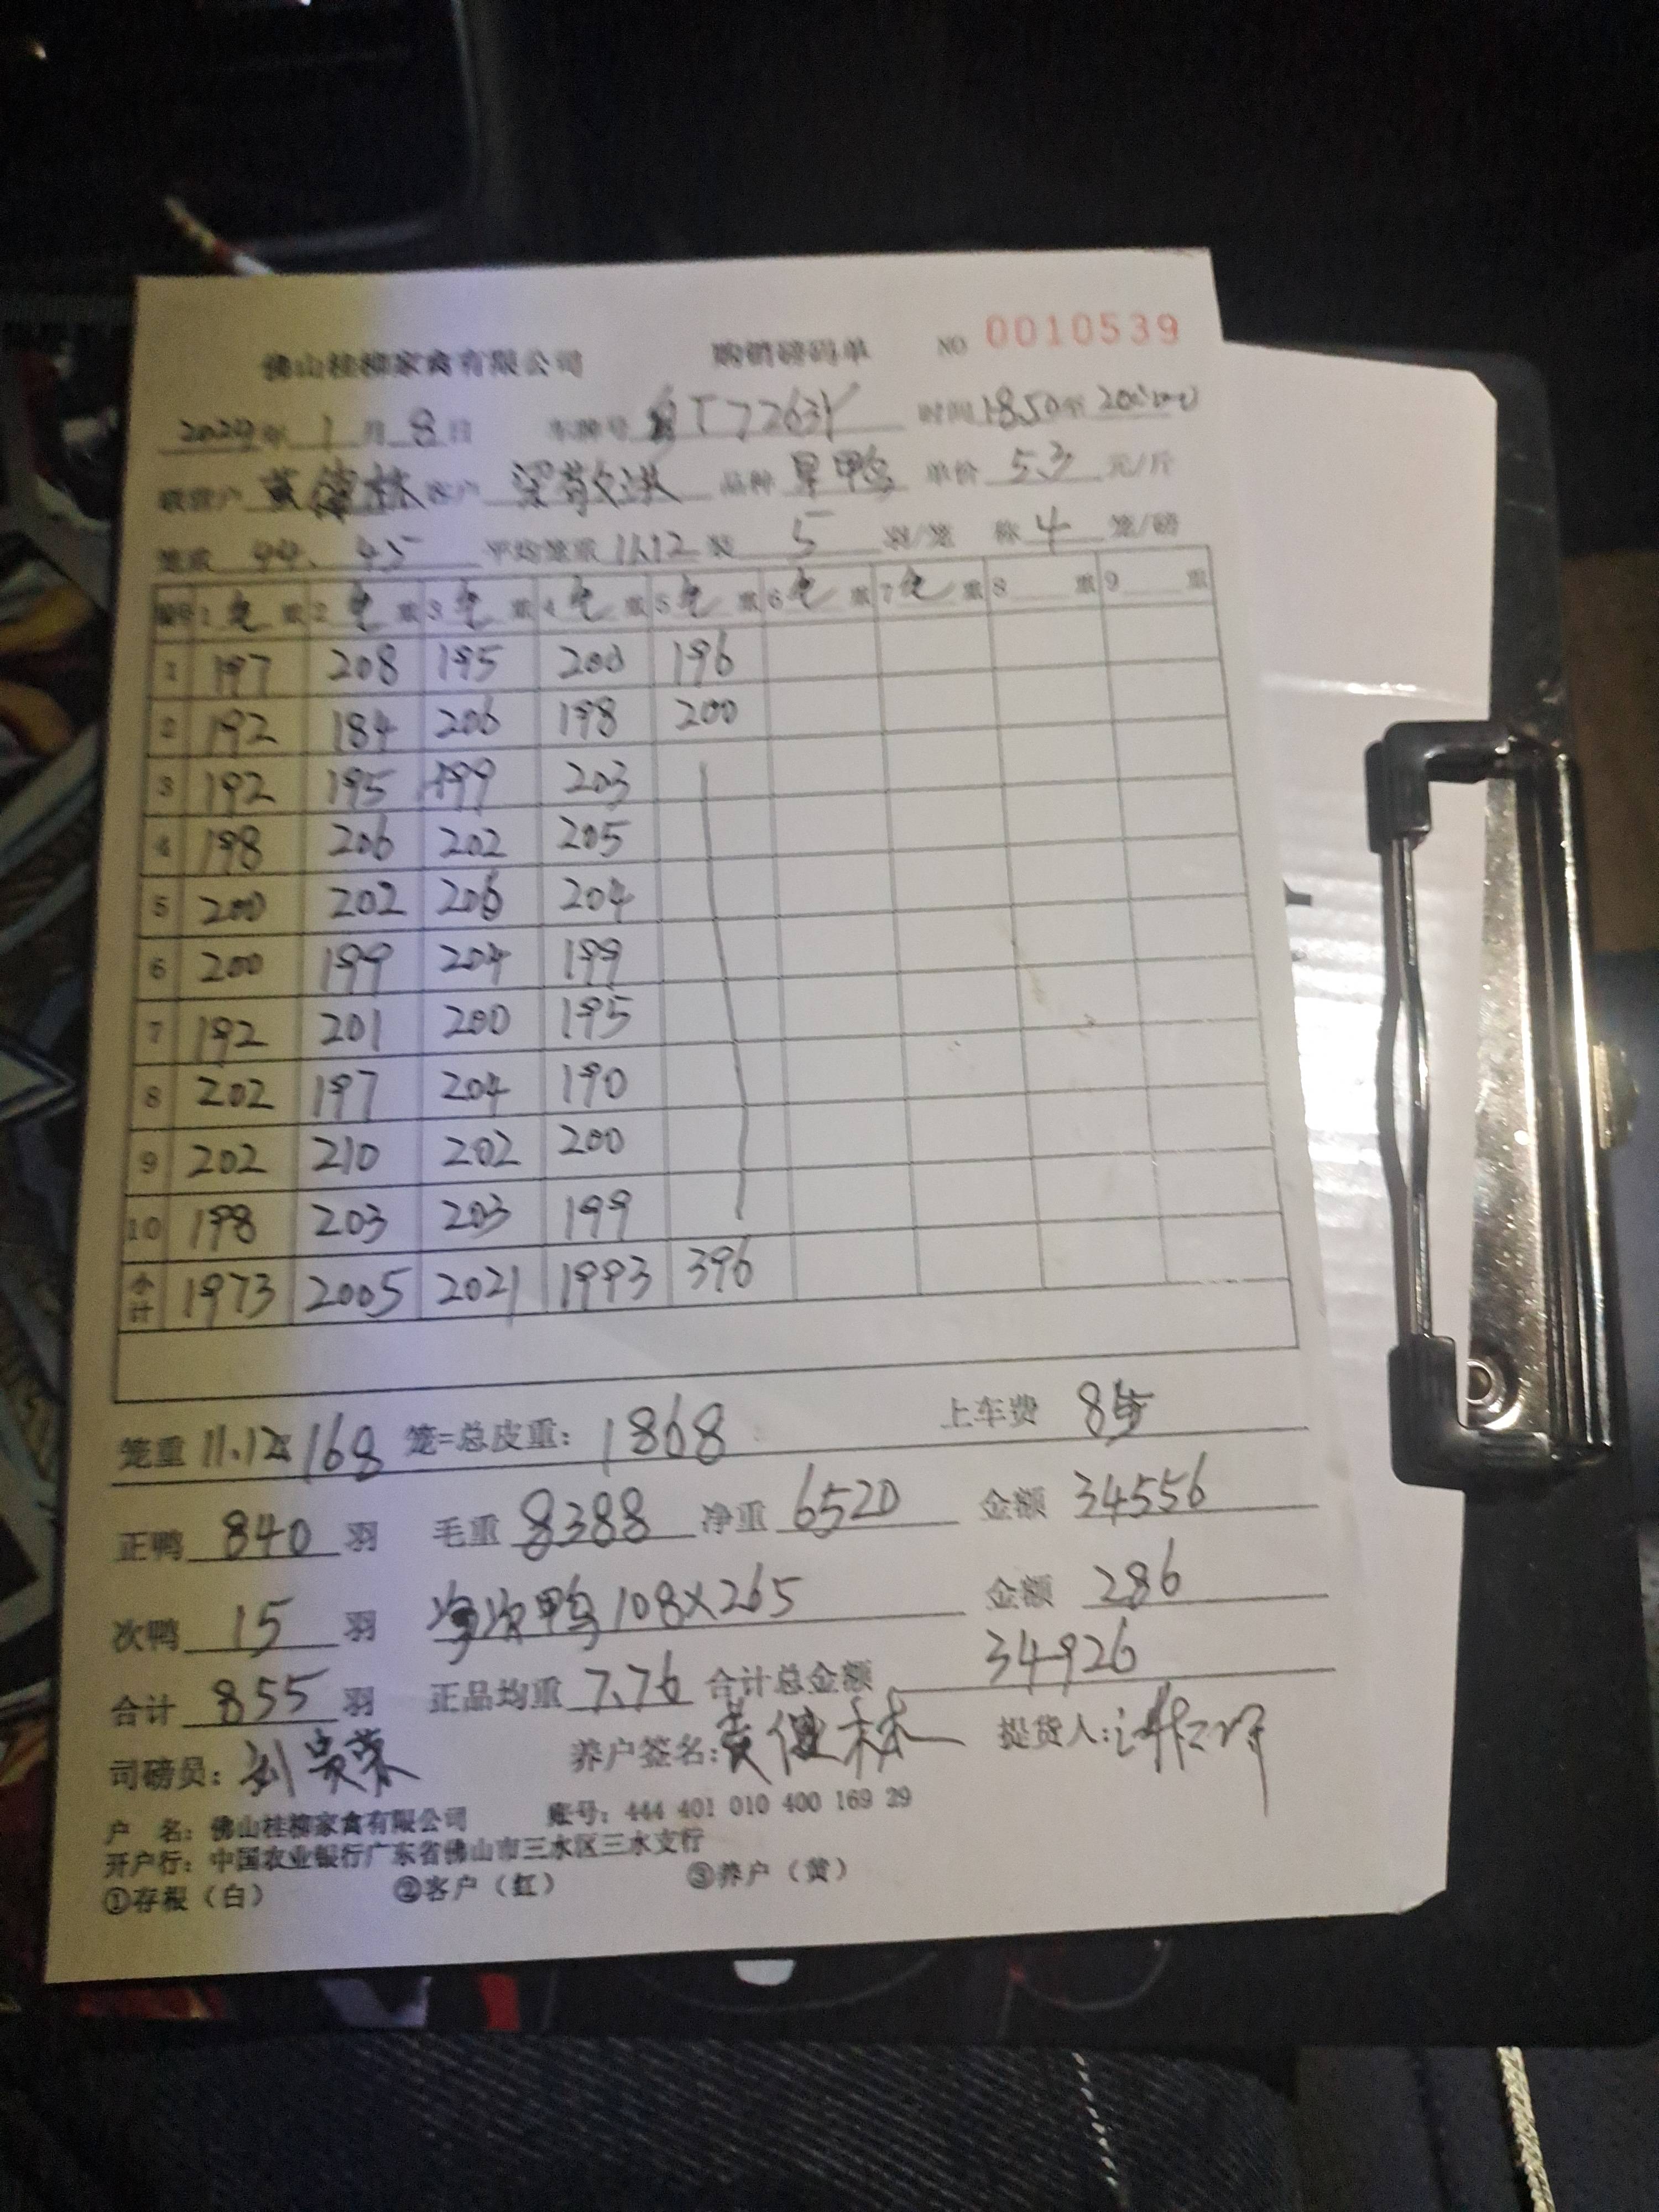 佛山桂柳家禽有限公司 购销磅码单 NO 0010539
2024年 1月 8日 车牌号 T7263Y 时间 18.50至 20:00
联营户 黄健林 客户 梁敬洪 品种 旱鸭 单价 5.3 元/斤
笼重 44. 45 平均笼重 11.12 装 5 羽/笼 称 4 笼/磅
编号 1 毛 重 2 毛 重 3 毛 重 4 毛 重 5 毛 重 6 毛 重 7 毛 重 8 重 9 重
1 197 208 195 200 196
2 192 184 206 198 200
3 192 195 199 203
4 198 206 202 205
5 200 202 206 204
6 200 199 204 199
7 192 201 200 195
8 202 197 204 190
9 202 210 202 200
10 198 203 203 199
小计 1973 2005 2021 1993 396
笼重 11.12x168 笼=总皮重: 1868 上车费 84
正鸭 840 羽 毛重 8388 净重 6520 金额 34556
次鸭 15 羽 次鸭 108X265 金额 286
合计 855 羽 正品均重 7.76 合计总金额 34926
司磅员: 刘 荣 养户签名: 黄健林 提货人:
户 名: 佛山桂柳家禽有限公司 账号: 444 401 010 400 169 29
开户行: 中国农业银行广东省佛山市三水区三水支行
①存根（白） ②客户（红） ③养户（黄）